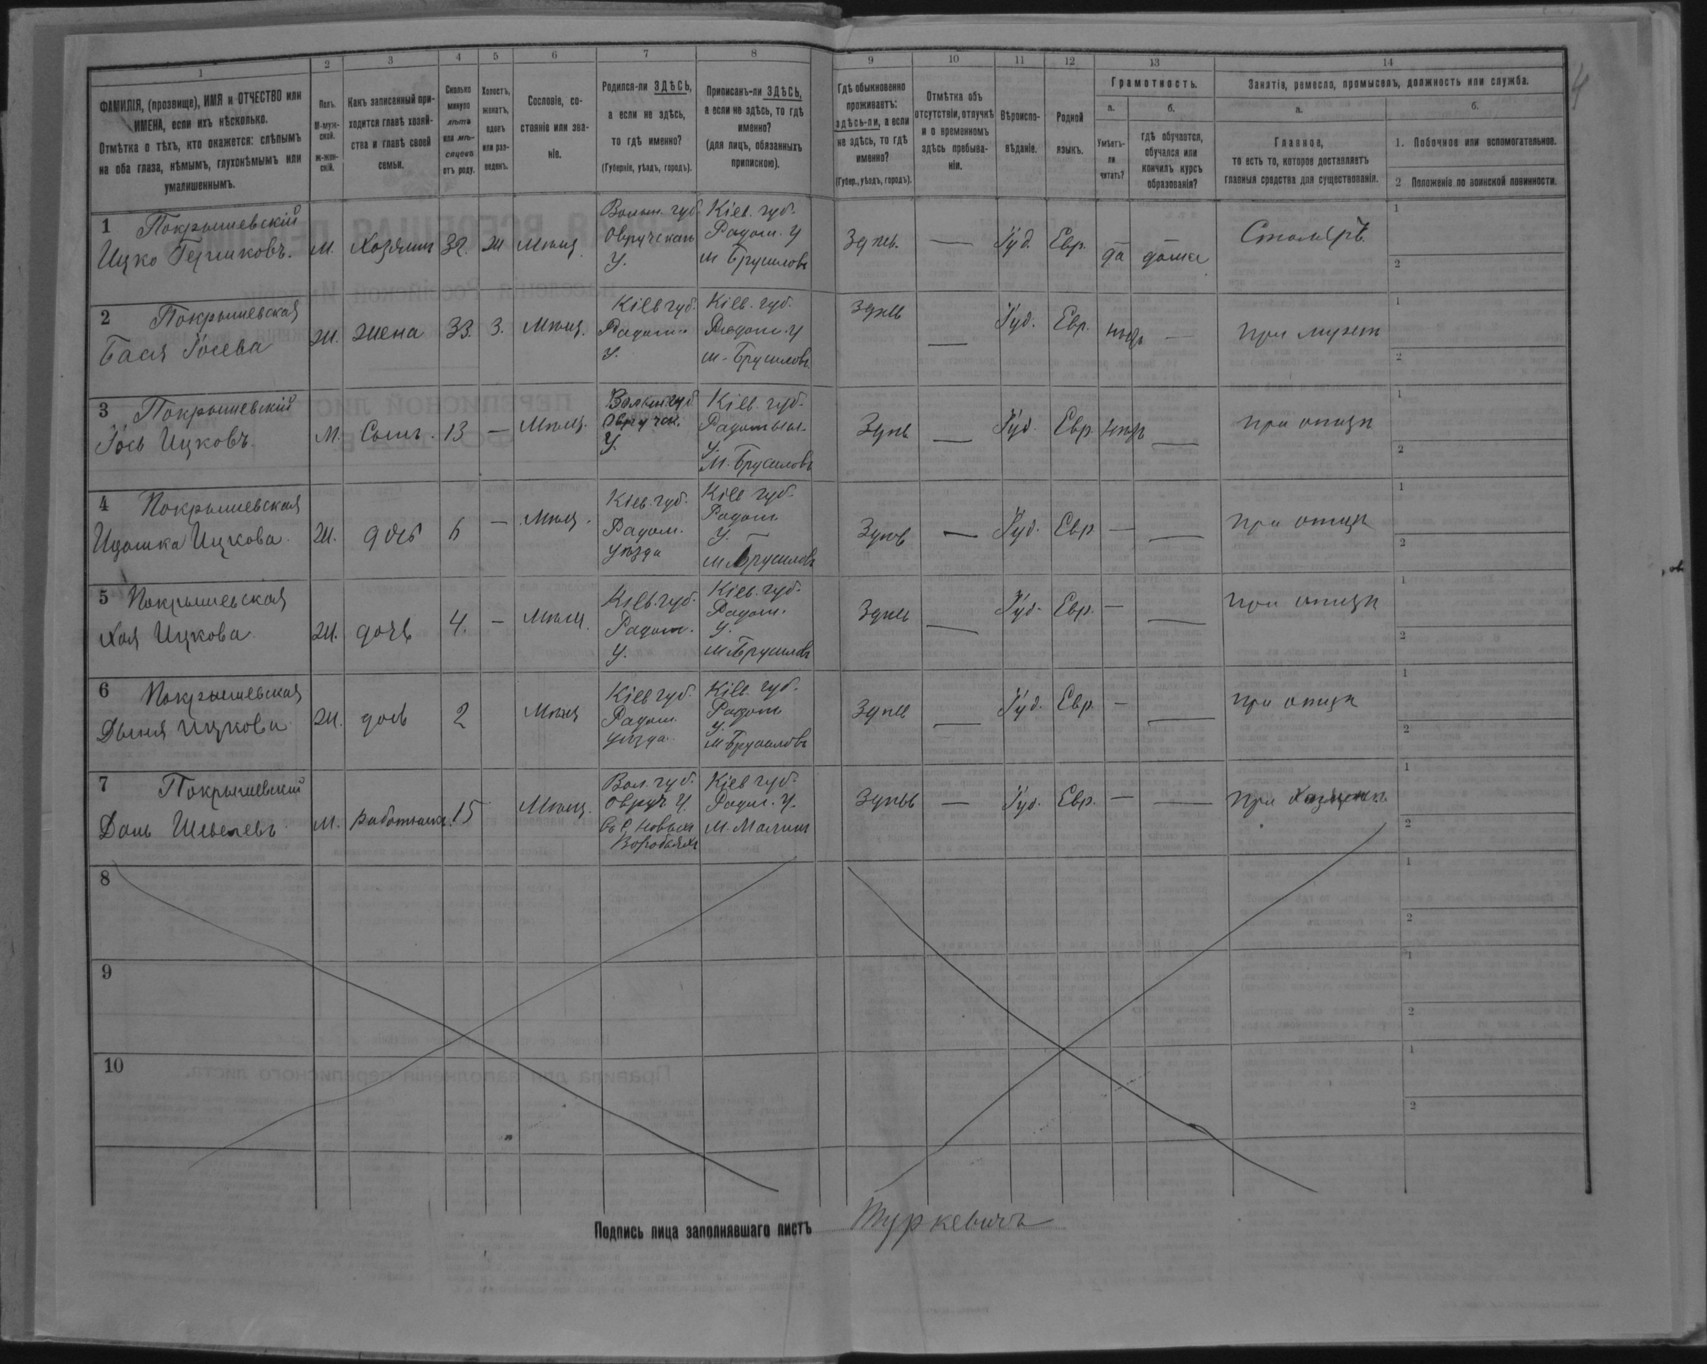 1 2 3 4 5 6 7 8 9 10 11 12 13 14
ФАМИЛІЯ, (прозвище), ИМЯ и ОТЧЕСТВО или ИМЕНА, если ихъ нѣсколько.
Отмѣтка о тѣхъ, кто окажется: слѣпымъ на оба глаза, нѣмымъ, глухонѣмымъ или умалишеннымъ.
Полъ.
М-мужской.
ж-женскій.
Какъ записанный приходится главѣ хозяйства и главѣ своей семьи.
Сколько минуло лѣтъ или мѣсяцевъ отъ роду.
Холостъ, женатъ, вдовъ или разведенъ.
Сословіе, состояніе или званіе.
Родился-ли ЗДѢСЬ,
а если не здѣсь,
то гдѣ именно?
(Губернія, уѣздъ, городъ).
Приписанъ-ли ЗДѢСЬ,
а если не здѣсь, то гдѣ именно?
(для лицъ, обязанныхъ припискою).
Гдѣ обыкновенно проживаетъ:
здѣсь-ли, а если не здѣсь, то гдѣ именно?
(Губер., уѣздъ, городъ).
Отмѣтка объ отсутствіи, отлучкѣ и о временномъ здѣсь пребываніи.
Вѣроисповѣданіе.
Родной языкъ.
Грамотность.
а.
Умѣетъ-ли читать?
б.
гдѣ обучается, обучался или кончилъ курсъ образованія?
Занятія, ремесло, промыселъ, должность или служба.
а.
Главное,
то есть то, которое доставляетъ главныя средства для существованія.
б.
1. Побочное или вспомогательное.
2 Положеніе по воинской повинности.
4
1 Покрышевскій
Ицко Гершковъ. М. Хозяинъ 32. Ж Мѣщ.
Волын. губ. Овручскаго У.
Кіев. губ. Радом. У м Брусиловъ
Здѣсь. — Іуд. Евр. да дома Столяръ.
1
2
2 Покрышевская
Бася Іосева Ж. Жена 33. З. Мѣщ.
Кіев губ. Радом. У.
Кіев. губ. Радом. У м. Брусиловъ
Здѣсь — Іуд. Евр. нѣтъ — при мужѣ
1
2
3 Покрышевскій
Іось Ицковъ М. Сынъ. 13 — Мѣщ.
Волын губ Овруч. У.
Кіев. губ. Радомысл. У. М. Брусиловъ
Здѣсь — Іуд. Евр нѣтъ — при отцѣ
1
2
4 Покрышевская
Ицкова. Ж. дочь 6 — Мѣщ.
Кіев. губ. Радом. уѣзда
Кіев губ. Радом У. м Брусиловъ
Здѣсь — Іуд. Евр — — при отцѣ
1
2
5 Покрышевская
Хая Ицкова Ж. дочь 4. — Мѣщ.
Кіев. губ. Радом. У.
Кіев. губ. Радом. У. м Брусиловъ
Здѣсь — Іуд. Евр. — — при отцѣ
1
2
6 Покрышевская
Ицкова Ж. дочь 2 Мѣщ
Кіев губ. Радом. уѣзда.
Кіев. губ. Радом У. м Брусиловъ
Здѣсь — Іуд. Евр. — — при отцѣ
1
2
7 Покрышевскій
М. Работникъ. 15 Мѣщ.
Вол. губ. Овруч У. въ С. Новыхъ Воробьяхъ
Кіев губ. Радом. У. М. Малинъ
Здѣсь — Іуд. Евр. — — при хозяинѣ
1
2
8
1
2
9
1
2
10
1
2
Подпись лица заполнявшаго листъ Туркевичъ